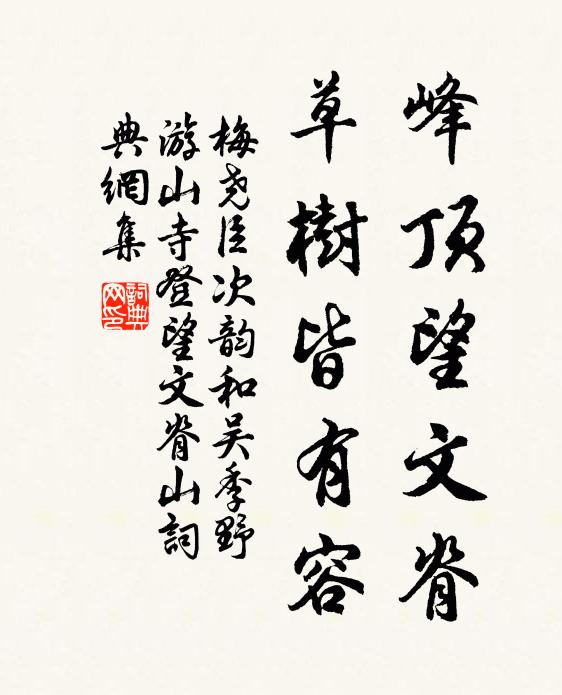 峰顶望文脊
草樹皆有容
梅尧臣次韵和吴季野
游山寺登望文脊山詞
典網集
詞典网印